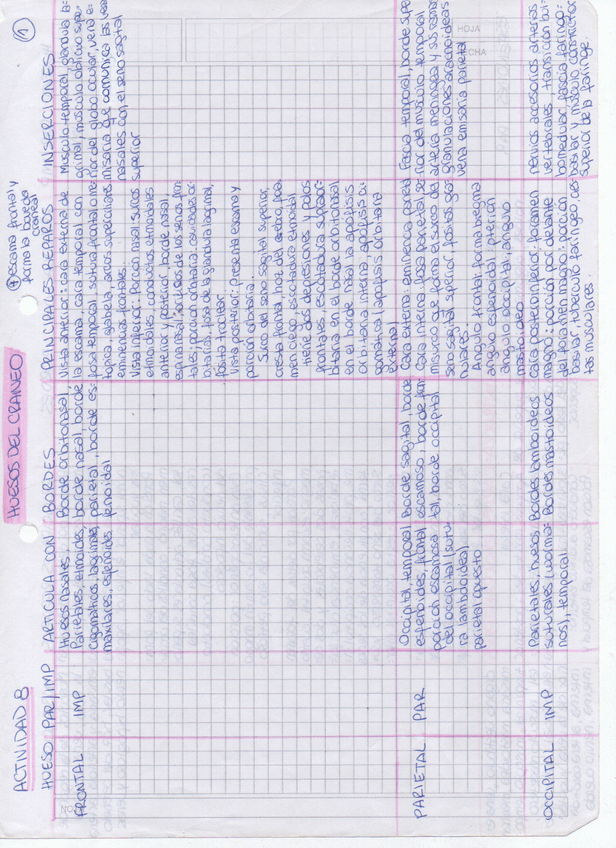 ① ACTIVIDAD 8
HUESOS DEL CRANEO
escama frontal y
forma la boveda
craneal
HUESO PAR/IMP ARTICULA CON BORDES PRINCIPALES REPAROS INSERCIONES
FRONTAL IMP
Huesos nasales,
Parietales, etmoides,
cigomaticos, lagrimales,
maxilares, esfenoides
Borde orbitonasal,
borde nasal, borde
parietal, borde es-
fenoidal
Vista anterior: cara externa de
la escama, cara temporal con
fosa temporal, sutura frontal o me
topica, glabela, arcos superciliares
eminencias frontales
Vista inferior: Porción nasal surcos
etmoidales, conductos etmoidales
anterior y posterior, borde nasal,
espina nasal, orificios de los senos fron
tales; porcion orbitaria caras
orbitarias, fosa de la glandula lagrimal,
fosita troclear
Vista posterior: Presenta escama y
porción orbitaria.
Surco del seno sagital superior,
cresta frontal, hoz del cerebro,
men ciego, escotadura etmoidal
tiene dos depresiones y arcos
frontales, escotadura supraor-
bitaria en el borde orbitonasal
en el borde nasal la apófisis
orbitaria interna, apófisis ci
gomatica (apofisis orbitaria
externa)
Musculo temporal, glandula la-
grimal, musculo oblicuo supe-
rior del globo ocular, vena e-
misaria que comunica las venas
nasales con el seno sagital
superior
PARIETAL PAR
Occipital, temporal
esfenoides, frontal
porcion escamosa
del occipital (sutu
ra lambdoidea)
parietal opuesto
Borde sagital, borde
escamoso, borde fron
tal, borde occipital
Cara externa: eminencia parietal
Cara interna: fosa parietal, se
misurco q' forma el surco del
seno sagital superior, fositas gra
nulares.
Angulo frontal: forma bregma
angulo esfenoidal: pterion
angulo occipital, angulo
mastoideo
Fascia temporal, borde supe
rior del musculo temporal
arteria meningea y sus ramas
granulaciones aracnoideas
vena emisaria parietal
OCCIPITAL IMP
Parietales, huesos
suturales (wormia-
nos), temporal
Bordes lambdoideos
Bordes mastoideos
Cara posteroinferior: foramen
magno: porcion por delante
del foramen magno: porcion
basilar, tuberculo faringeo,
tas musculares.
nervios accesorios arterias
vertebrales transicion bul-
bomedular, fascia faringo-
basilar y musculo constrictor
superior de la faringe.
HOJA